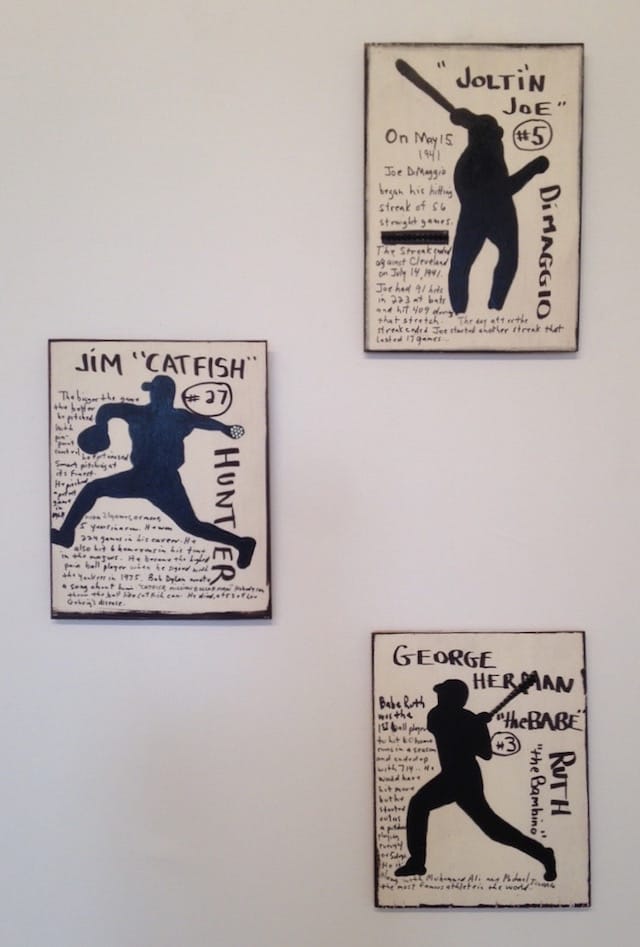 "JOLTIN
JOE"
#5
DiMAGGIO
On May 15
1941
Joe DiMaggio
began his hitting
streak of 56
straight games.
The Streak ended
against Cleveland
on July 14, 1941.
Joe had 91 hits
in 223 at bats
and hit 409 during
that stretch. The day after the
streak ended Joe started another streak that
lasted 17 games...
JiM "CATFISH"
#27
HUNTER
The bigger the game
the better
he pitched
With
pin
point
control he epitomized
Smart pitching at
its finest.
He pitched
a perfect
game
in
5 years in a row. He won
224 games in his career. He
also hit 6 homeruns in his time
in the majors. He became the highest
paid ball player when he signed with
the Yankees in 1975. Bob Dylan wrote
a song about him "CATFISH, MILLION DOLLAR MAN Nobody can
throw the ball like catfish can. He died of
Gehrig's disease.
GEORGE
HERMAN
"the BABE"
#3
RUTH
"the Bambino"
Babe Ruth
was the
1st ball player
to hit 60 home
runs in a season
and ended up
with 714... He
would have
hit more
but he
started
out as
a pitcher
playing
every 4
or 5 days
He is
along with Muhammad Ali
the most famous athlete in the world